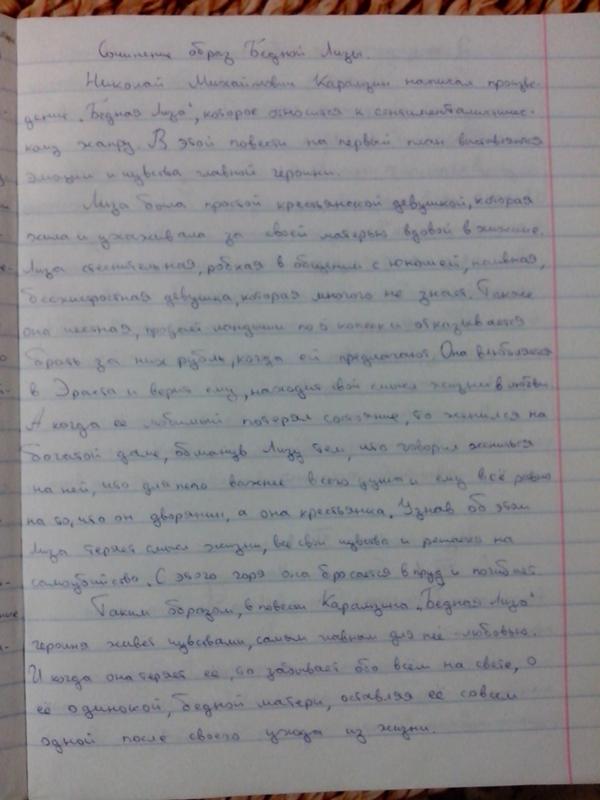 Сочинение образ Бедной Лизы.
Николай Михайлович Карамзин написал произве-
дение „Бедная Лиза", которое относится к сентименталистичес-
кому жанру. В этой повести на первый план выставляются
эмоции и чувства главной героини.
Лиза была простой крестьянской девушкой, которая
жила и ухаживала за своей матерью вдовой в хижине.
Лиза стеснительная, робкая в общении с юношей, наивная,
бесхитростная девушка, которая многого не знает. Также
она честная, продаёт ландыши по 5 копеек и отказывается
брать за них рубль, когда ей предлагают. Она влюбляется
в Эраста и верит ему, находит свой смысл жизни в любви.
А когда её любимый потерял состояние, то женился на
богатой даме, обманув Лизу тем, что говорил жениться
на ней, что для него важнее всего душа и ему всё равно
на то, что он дворянин, а она крестьянка. Узнав об этом
Лиза теряет смысл жизни, все свои чувства и решается на
самоубийство. С этого горя она бросается в пруд и погибает.
Таким образом, в повести Карамзина „Бедная Лиза"
героиня живёт чувствами, самым главным для неё - любовью.
И когда она теряет её, то забывает обо всём на свете, о
её одинокой, бедной матери, оставляя её совсем
одной после своего ухода из жизни.